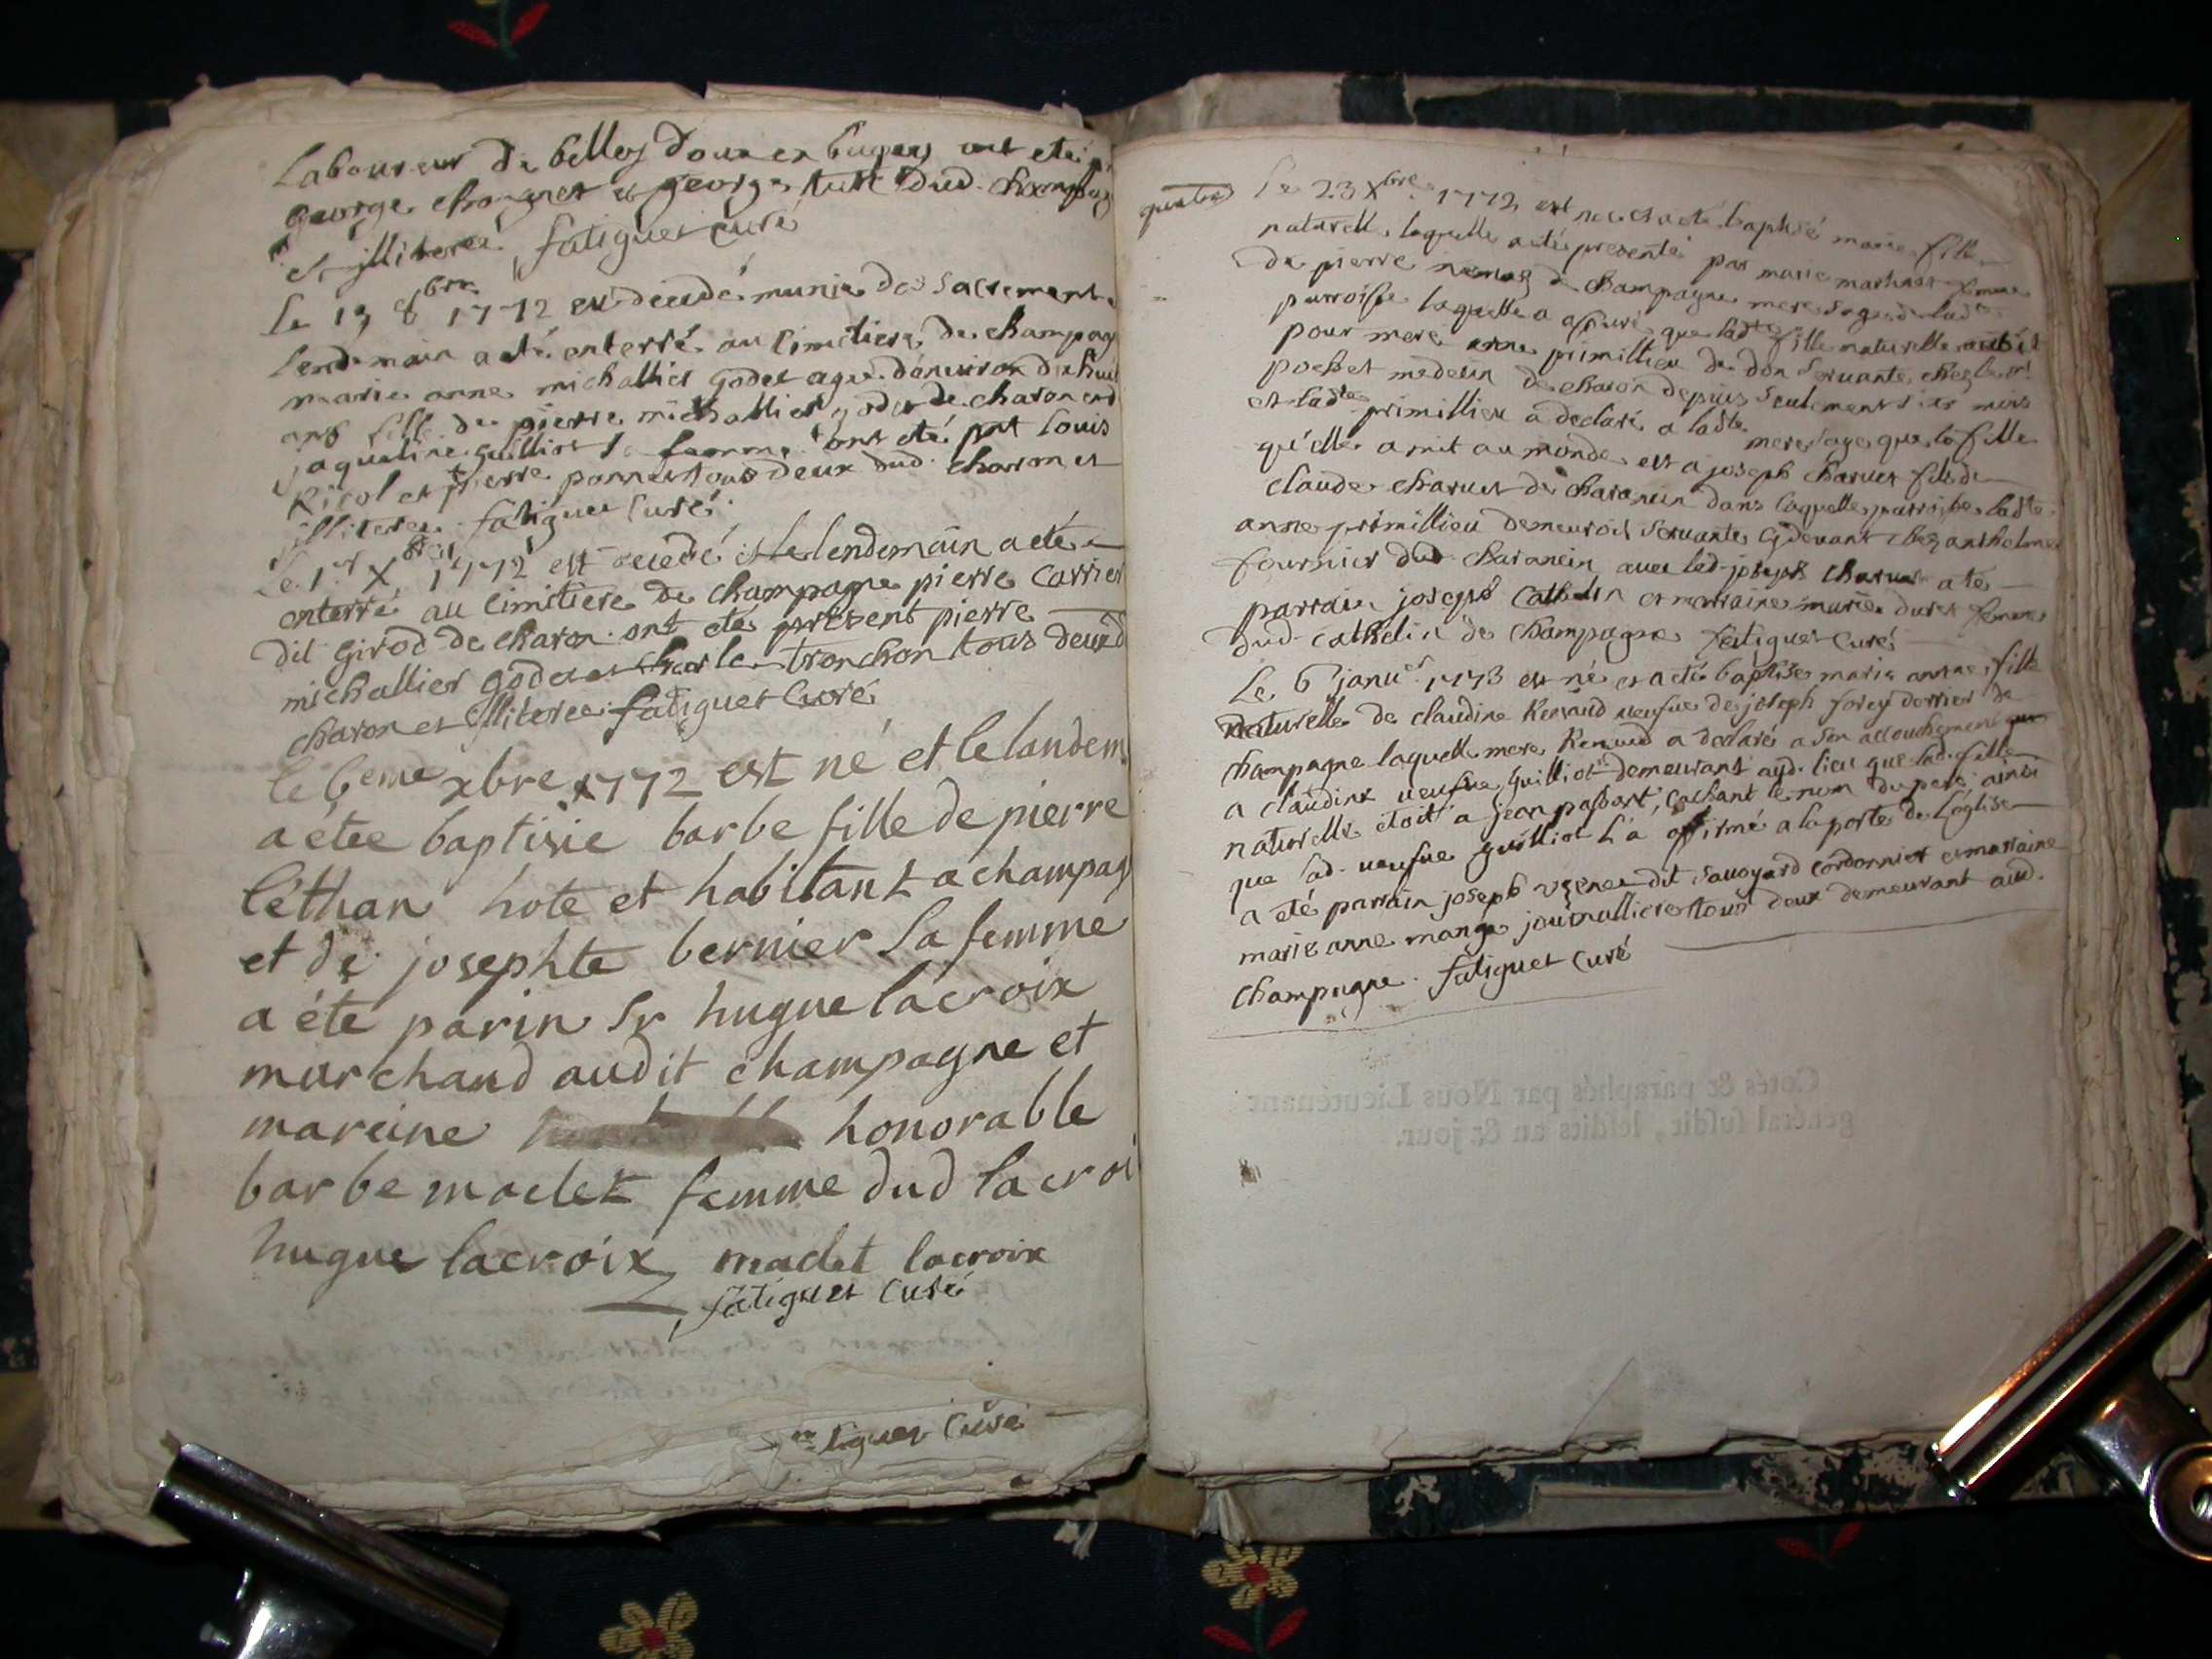 Laboureur de belley doux en bugey ont eté
george et george dud. champag
et illiteree fatiguet curé
Le 13 8bre 1772 est decedé munie des sacrements
lendemain a eté enterré au cimetiere de champag
marie anne michallier godet agé d'environ dixhuit
ans fille de pierre michallier godet de charon et d
jaqueline guilliot sa femme ont eté pnt Louis
Ricol et pierre tous deux dud. charon et
illiteree. fatiguet curé
Le 1er Xbre 1772 est decedé et le lendemain a eté
enterré au cimetiere de champagne pierre carrier
dit girod de charon. ont eté present pierre
michallier godet et charle tronchon tous deux d
charon et illiteree. fatiguet curé
le 6eme xbre 1772 est né et le landem
a étee baptisie barbe fille de pierre
léthan hote et habitant a champag
et de josephte bernier sa femme
a éte parin Sr hugue lacroix
marchand audit champagne et
mareine honorable
barbe madet femme dud lacroi
hugue lacroix madet lacroix
fatiguet curé
tiguet curé
Le 23 Xbre 1772 est née et a eté baptisé marie fille
naturelle, laquelle a eté presenté par marie martinet femme
de pierre de champagne mere sage de lad.
parroisse laquelle a assuré que ladte fille naturelle
pour mere anne primillieu de don servante chez le sr
pochet medecin de charon depuis seulement mois
et ladte primillieu a declaré a ladte mere sage que la fille
qu'elle a mit au monde est a joseph charvet fils de
claude charvet de charancin dans laquelle parroisse ladte
anne primillieu demeuroit servante cydevant chez anthelme
fournier dud. charancin avec led. joseph charvet a eté
parrain joseph cathelin et marraine marie duret femme
dud. cathelin de champagne fatiguet curé
Le 6 janver 1773 est né et a eté baptisé marie anne fille
naturelle de claudine Renaud veufve de joseph forey dorrier de
champagne laquelle mere Renaud a declaré a son accouchement
a claudine veufve guilliot demeurant aud. lieu que lad. fille
naturelle étoit a jean passort, cachant le nom du pere ainsi
que lad. veufve guilliot l'a affirmé a la porte de l'église
a eté parrain joseph dit savoyard cordonnier et marraine
marie anne mange journalliere tous deux demeurant aud.
champagne. fatiguet curé
Cotés & paraphés par Nous Lieutenant
général susdit, lesdits an & jour.